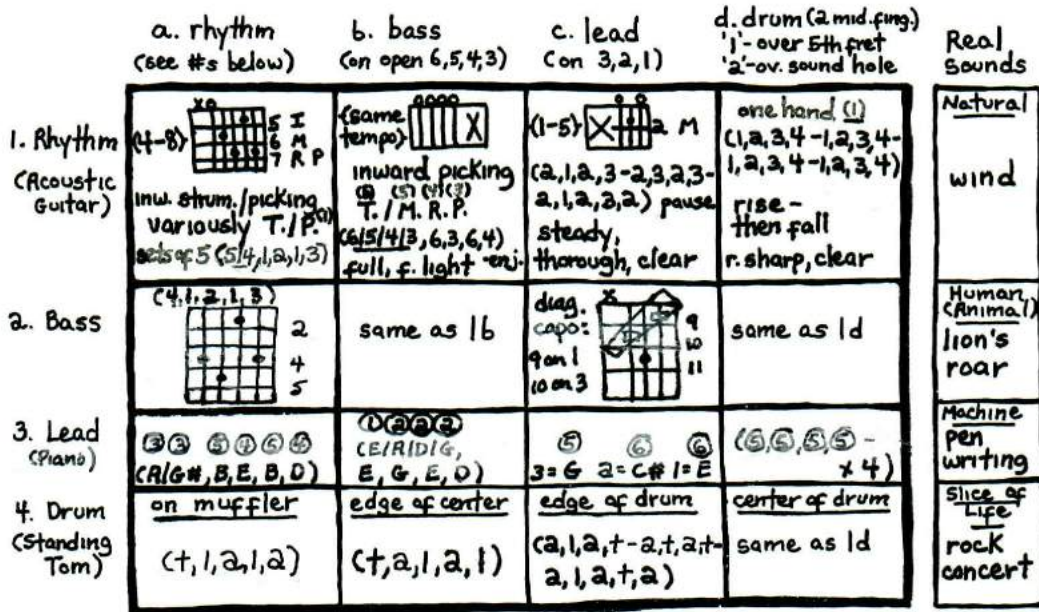 a. rhythm
(see #s below)
b. bass
(on open 6,5,4,3)
c. lead
(on 3,2,1)
d. drum (2 mid. fing.)
'1'- over 5th fret
'2'-ov. sound hole
Real
Sounds
1. Rhythm
(Acoustic
Guitar)
x o
(4-8)
5 I
6 M
7 R P
inw. strum./picking
variously T./P.(1)
sets of 5 (5/4,1,2,1,3)
(same
tempo)
oooo
X
inward picking
(2) (5) (4) (3)
T. / M. R. P.
(6/5/4/3, 6,3,6,4)
full, f. light -enj.
(1-5)
o o
X
2 M
(2,1,2,3-2,3,2,3-
2,1,2,3,2) pause
steady,
thorough, clear
one hand (1)
(1,2,3,4-1,2,3,4-
1,2,3,4-1,2,3,4)
rise -
then fall
r. sharp, clear
Natural
wind
2. Bass
(4,1,2,1,3)
2
4
5
same as 1b
diag.
capo:
9 on 1
10 on 3
x
9
10
11
same as 1d
Human
(Animal)
lion's
roar
3. Lead
(Piano)
3 3 5 4 5
(A/G#, B, E, B, D)
1 2 2 2
(E/A/D/G,
E, G, E, D)
5 6 6
3=G 2=C# 1=E
(5,5,5,5 -
x 4)
Machine
pen
writing
4. Drum
(Standing
Tom)
on muffler
(t,1,2,1,2)
edge of center
(t,2,1,2,1)
edge of drum
(2,1,2,t-2,t,2,t-
2,1,2,t,2)
center of drum
same as 1d
Slice of
Life
rock
concert